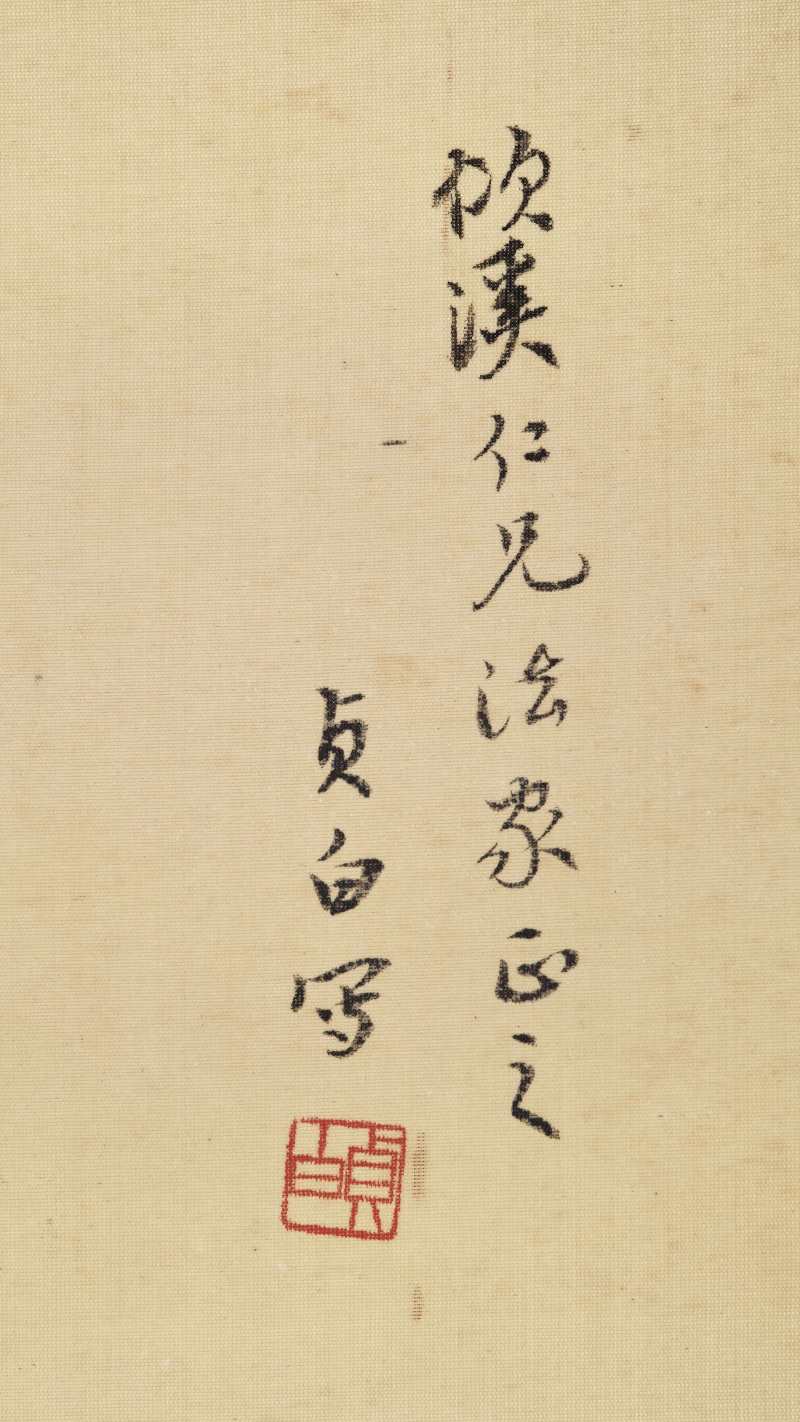 幀溪仁兄法家正之
貞白寫
貞白